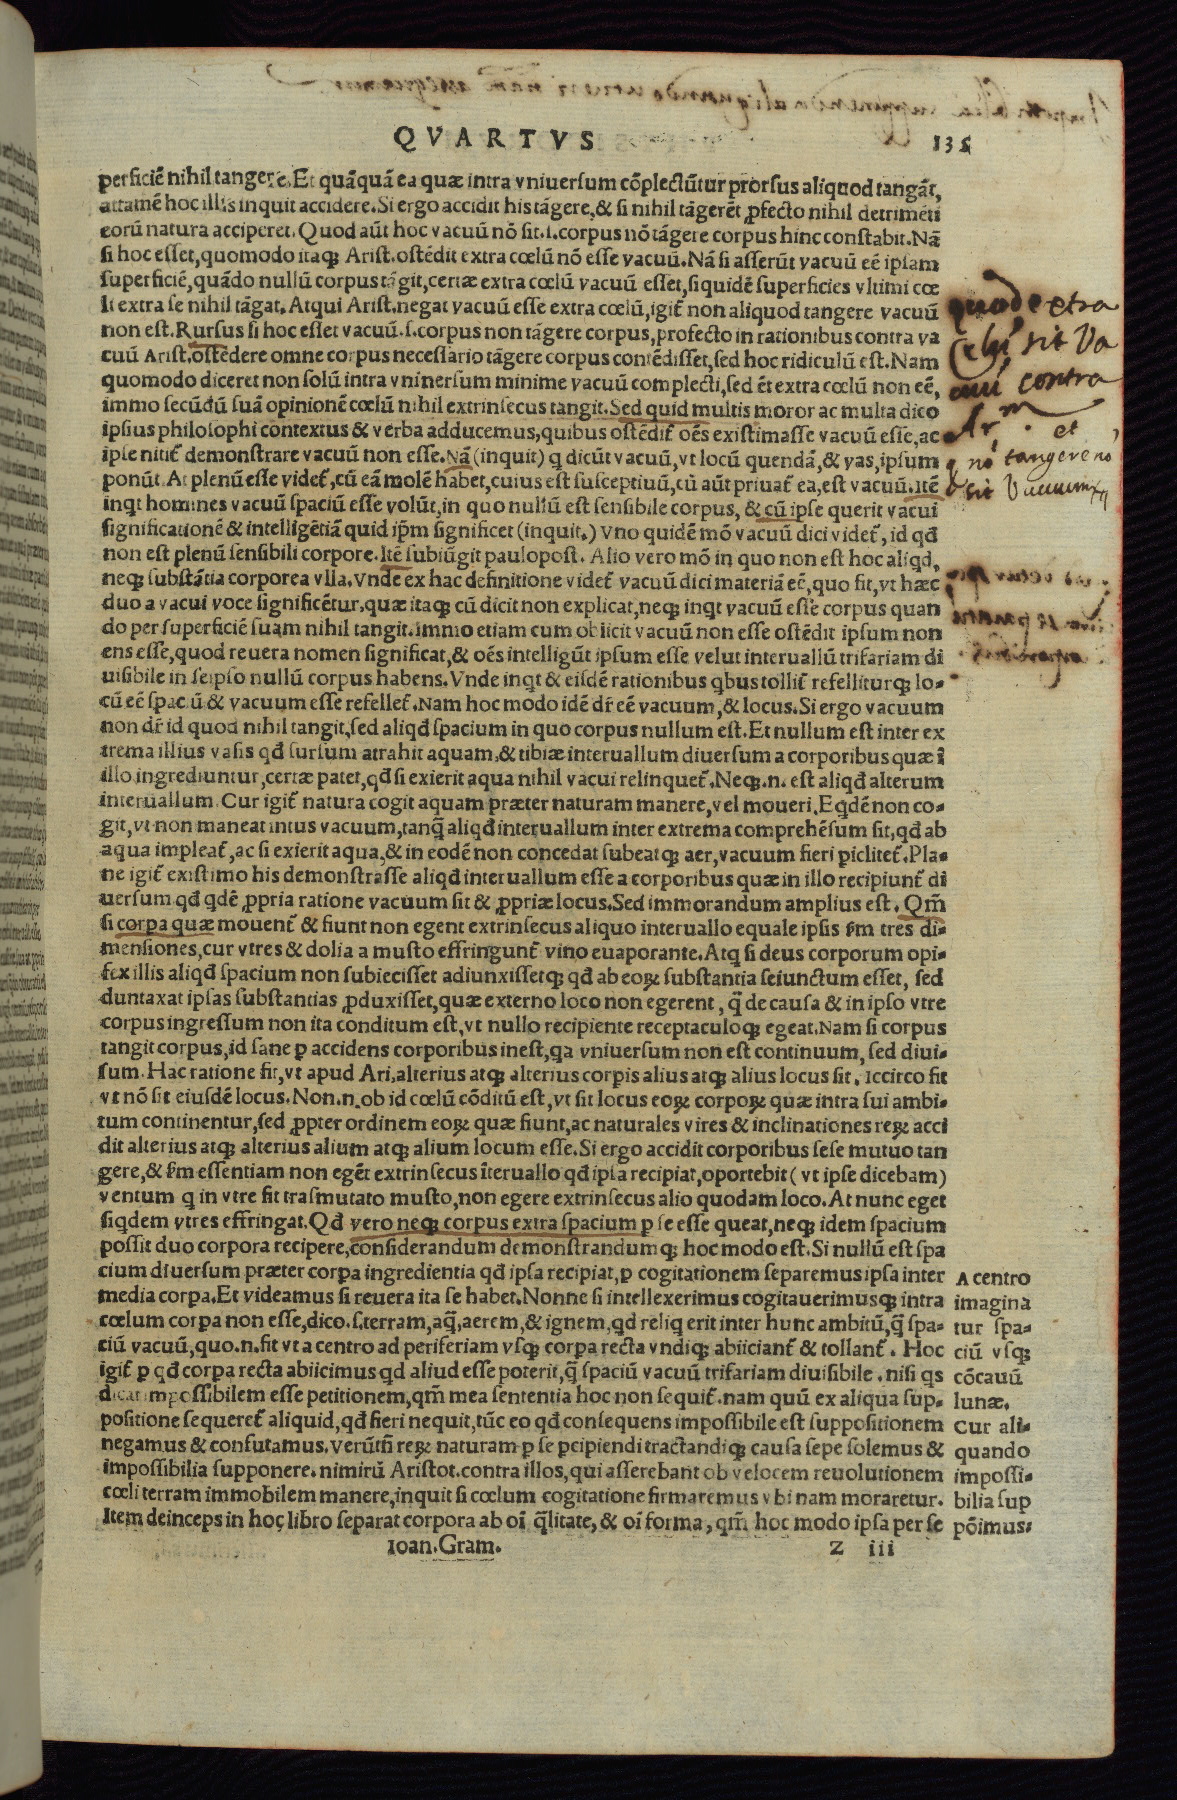 QVARTVS 135
perficiē nihil tangere. Et quāquā ea quæ intra vniuersum cōplectūtur prorsus aliquod tangāt,
attamē hoc illis inquit accidere. Si ergo accidit his tāgere, & si nihil tāgerēt ꝓfecto nihil detrimēti
eorū natura acciperet. Quod aūt hoc vacuū nō sit .i. corpus nō tāgere corpus hinc constabit. Nā
si hoc esset, quomodo itaqꝫ Arist. ostēdit extra cœlū nō esse vacuū. Nā si asserūt vacuū eē ipsam
superficiē, quādo nullū corpus tāgit, certæ extra cœlū vacuū esset, siquidē superficies vltimi cœ
li extra se nihil tāgat. Atqui Arist. negat vacuū esse extra cœlū, igit̄ non aliquod tangere vacuū
non est. Rursus si hoc esset vacuū .s. corpus non tāgere corpus, profecto in rationibus contra va
cuū Arist. ostēdere omne corpus necessario tāgere corpus contēdisset, sed hoc ridiculū est. Nam
quomodo diceret non solū intra vniuersum minime vacuū complecti, sed ēt extra cœlū non eē,
immo secūdū suā opinionē cœlū nihil extrinsecus tangit. Sed quid multis moror ac multa dico
ipsius philosophi contextus & verba adducemus, quibus ostēdit̄ oēs existimasse vacuū esse, ac
ipse nitit̄ demonstrare vacuū non esse. Nā (inquit) q dicūt vacuū, vt locū quendā, & vas, ipsum
ponūt. At plenū esse videt̄, cū eā molē habet, cuius est susceptiuū, cū aūt priuat̄ ea, est vacuū. Itē
inqt homines vacuū spaciū esse volūt, in quo nullū est sensibile corpus, & cū ipse querit vacui
significationē & intelligētiā quid ip̄m significet (inquit.) Vno quidē mō vacuū dici videt̄, id qđ
non est plenū sensibili corpore. Itē subiūgit paulopost. Alio vero mō in quo non est hoc aliqd,
neqꝫ substātia corporea vlla. Vnde ex hac definitione videt̄ vacuū dici materiā eē, quo fit, vt hæc
duo a vacui voce significētur, quæ itaqꝫ cū dicit non explicat, neqꝫ inqt vacuū esse corpus quan
do per superficiē suam nihil tangit. Immo etiam cum obiicit vacuū non esse ostēdit ipsum non
ens esse, quod reuera nomen significat, & oēs intelligūt ipsum esse velut interuallū trifariam di
uisibile in seipso nullū corpus habens. Vnde inqt & eisdē rationibus qbus tollit̄ refelliturqꝫ lo-
cū eē spaciū & vacuum esse refellet̄. Nam hoc modo idē dr̄ eē vacuum, & locus. Si ergo vacuum
non dr̄ id quod nihil tangit, sed aliqđ spacium in quo corpus nullum est. Et nullum est inter ex
trema illius vasis qđ sursum atrahit aquam, & tibiæ interuallum diuersum a corporibus quæ ī
illo ingrediuntur, certæ patet, qđ si exierit aqua nihil vacui relinquet̄. Neqꝫ .n. est aliqđ alterum
interuallum. Cur igit̄ natura cogit aquam præter naturam manere, vel moueri. Eqdē non co-
git, vt non maneat intus vacuum, tanq̄ aliqđ interuallum inter extrema comprehēsum sit, qđ ab
aqua impleat̄, ac si exierit aqua, & in eodē non concedat subeatqꝫ aer, vacuum fieri piclitet̄. Pla-
ne igit̄ existimo his demonstrasse aliqđ interuallum esse a corporibus quæ in illo recipiunt̄ di
uersum qđ qdē ꝓpria ratione vacuum sit & ꝓpriæ locus. Sed immorandum amplius est. Qm̄
si corpa quæ mouent̄ & fiunt non egent extrinsecus aliquo interuallo equale ipsis fm tres di-
mensiones, cur vtres & dolia a musto effringunt̄ vino euaporante. Atq si deus corporum opi-
fex illis aliqđ spacium non subiecisset adiunxissetqꝫ qđ ab eoꝝ substantia seiunctum esset, sed
duntaxat ipsas substantias ꝓduxisset, quæ externo loco non egerent, q̄ de causa & in ipso vtre
corpus ingressum non ita conditum est, vt nullo recipiente receptaculoqꝫ egeat. Nam si corpus
tangit corpus, id sane ꝑ accidens corporibus inest, qa vniuersum non est continuum, sed diui-
sum. Hac ratione fit, vt apud Ari. alterius atqꝫ alterius corpis alius atqꝫ alius locus sit. Iccirco fit
vt nō sit eiusdē locus. Non .n. ob id cœlū cōditū est, vt sit locus eoꝝ corpoꝝ quæ intra sui ambi-
tum continentur, sed ꝓpter ordinem eoꝝ quæ fiunt, ac naturales vires & inclinationes reꝝ acci
dit alterius atqꝫ alterius alium atqꝫ alium locum esse. Si ergo accidit corporibus sese mutuo tan
gere, & fm essentiam non egēt extrinsecus īteruallo qđ ipsa recipiat, oportebit (vt ipse dicebam)
ventum q in vtre fit trasmutato musto, non egere extrinsecus alio quodam loco. At nunc eget
siqdem vtres effringat. Qđ vero neqꝫ corpus extra spacium ꝑ se esse queat, neqꝫ idem spacium
possit duo corpora recipere, considerandum demonstrandumqꝫ hoc modo est. Si nullū est spa
cium diuersum præter corpa ingredientia qđ ipsa recipiat, ꝑ cogitationem separemus ipsa inter
media corpa. Et videamus si reuera ita se habet. Nonne si intellexerimus cogitauerimusqꝫ intra
cœlum corpa non esse, dico .s. terram, aq̄, aerem, & ignem, qd reliq erit inter hunc ambitū, q̄ spa-
ciū vacuū, quo .n. fit vt a centro ad periferiam vsqꝫ corpa recta vndiqꝫ abiiciant̄ & tollant̄. Hoc
igit̄ ꝑ qđ corpa recta abiicimus qd aliud esse poterit, q̄ spaciū vacuū trifariam diuisibile. nisi qs
dicat impossibilem esse petitionem, qm̄ mea sententia hoc non sequit̄. nam quū ex aliqua sup-
positione sequeret̄ aliquid, qđ fieri nequit, tūc eo qđ consequens impossibile est suppositionem
negamus & confutamus. Verūtn̄ reꝝ naturam ꝑ se pcipiendi tractandiqꝫ causa sepe solemus &
impossibilia supponere. nimirū Aristot. contra illos, qui asserebant ob velocem reuolutionem
cœli terram immobilem manere, inquit si cœlum cogitatione firmaremus vbi nam moraretur.
Item deinceps in hoc libro separat corpora ab oī q̄litate, & oī forma, qm̄ hoc modo ipsa per se
Ioan. Gram. Z iii
quod etra
Celū sit Va
cuū contra
Arᵐ. et
q nō tangere no
sit Vacuum
A centro
imagina
tur spa-
ciū vsqꝫ
cōcauū
lunæ.
Cur ali-
quando
impossi-
bilia sup
pōimus.